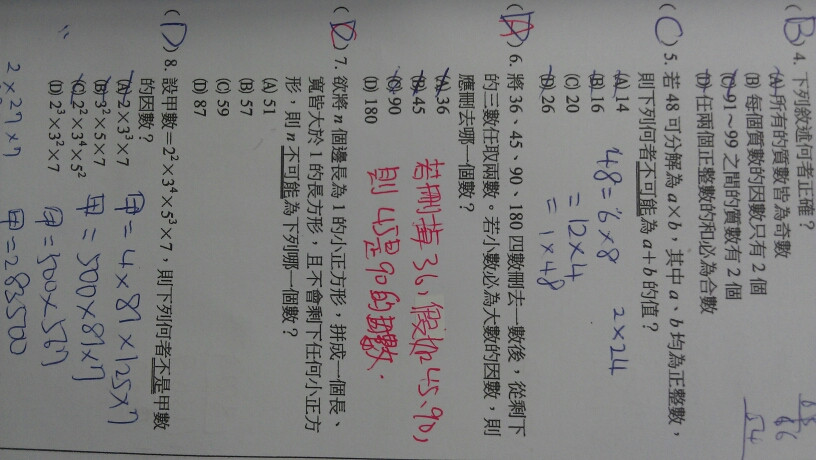 (B) 4. 下列敘述何者正確？
(A) 所有的質數皆為奇數
(B) 每個質數的因數只有 2 個
(C) 91～99 之間的質數有 2 個
(D) 任兩個正整數的和必為合數
(C) 5. 若 48 可分解為 a×b，其中 a、b 均為正整數，
則下列何者不可能為 a+b 的值？
(A) 14
(B) 16
(C) 20
(D) 26
48=6×8
=12×4
=1×48
2×24
(A) 6. 將 36、45、90、180 四數刪去一數後，從剩下
的三數任取兩數。若小數必為大數的因數，則
應刪去哪一個數？
(A) 36
(B) 45
(C) 90
(D) 180
若刪掉36，假如45、90，
則45是90的因數.
(C) 7. 欲將 n 個邊長為 1 的小正方形，拼成一個長、
寬皆大於 1 的長方形，且不會剩下任何小正方
形，則 n 不可能為下列哪一個數？
(A) 51
(B) 57
(C) 59
(D) 87
(D) 8. 設甲數=2²×3⁴×5³×7，則下列何者不是甲數
的因數？
(A) 2×3³×7
(B) 3²×5×7
(C) 2²×3⁴×5²
(D) 2³×3²×7
甲=4×81×125×7
甲=500×81×7
甲=500×567
甲=283500
2×27×7